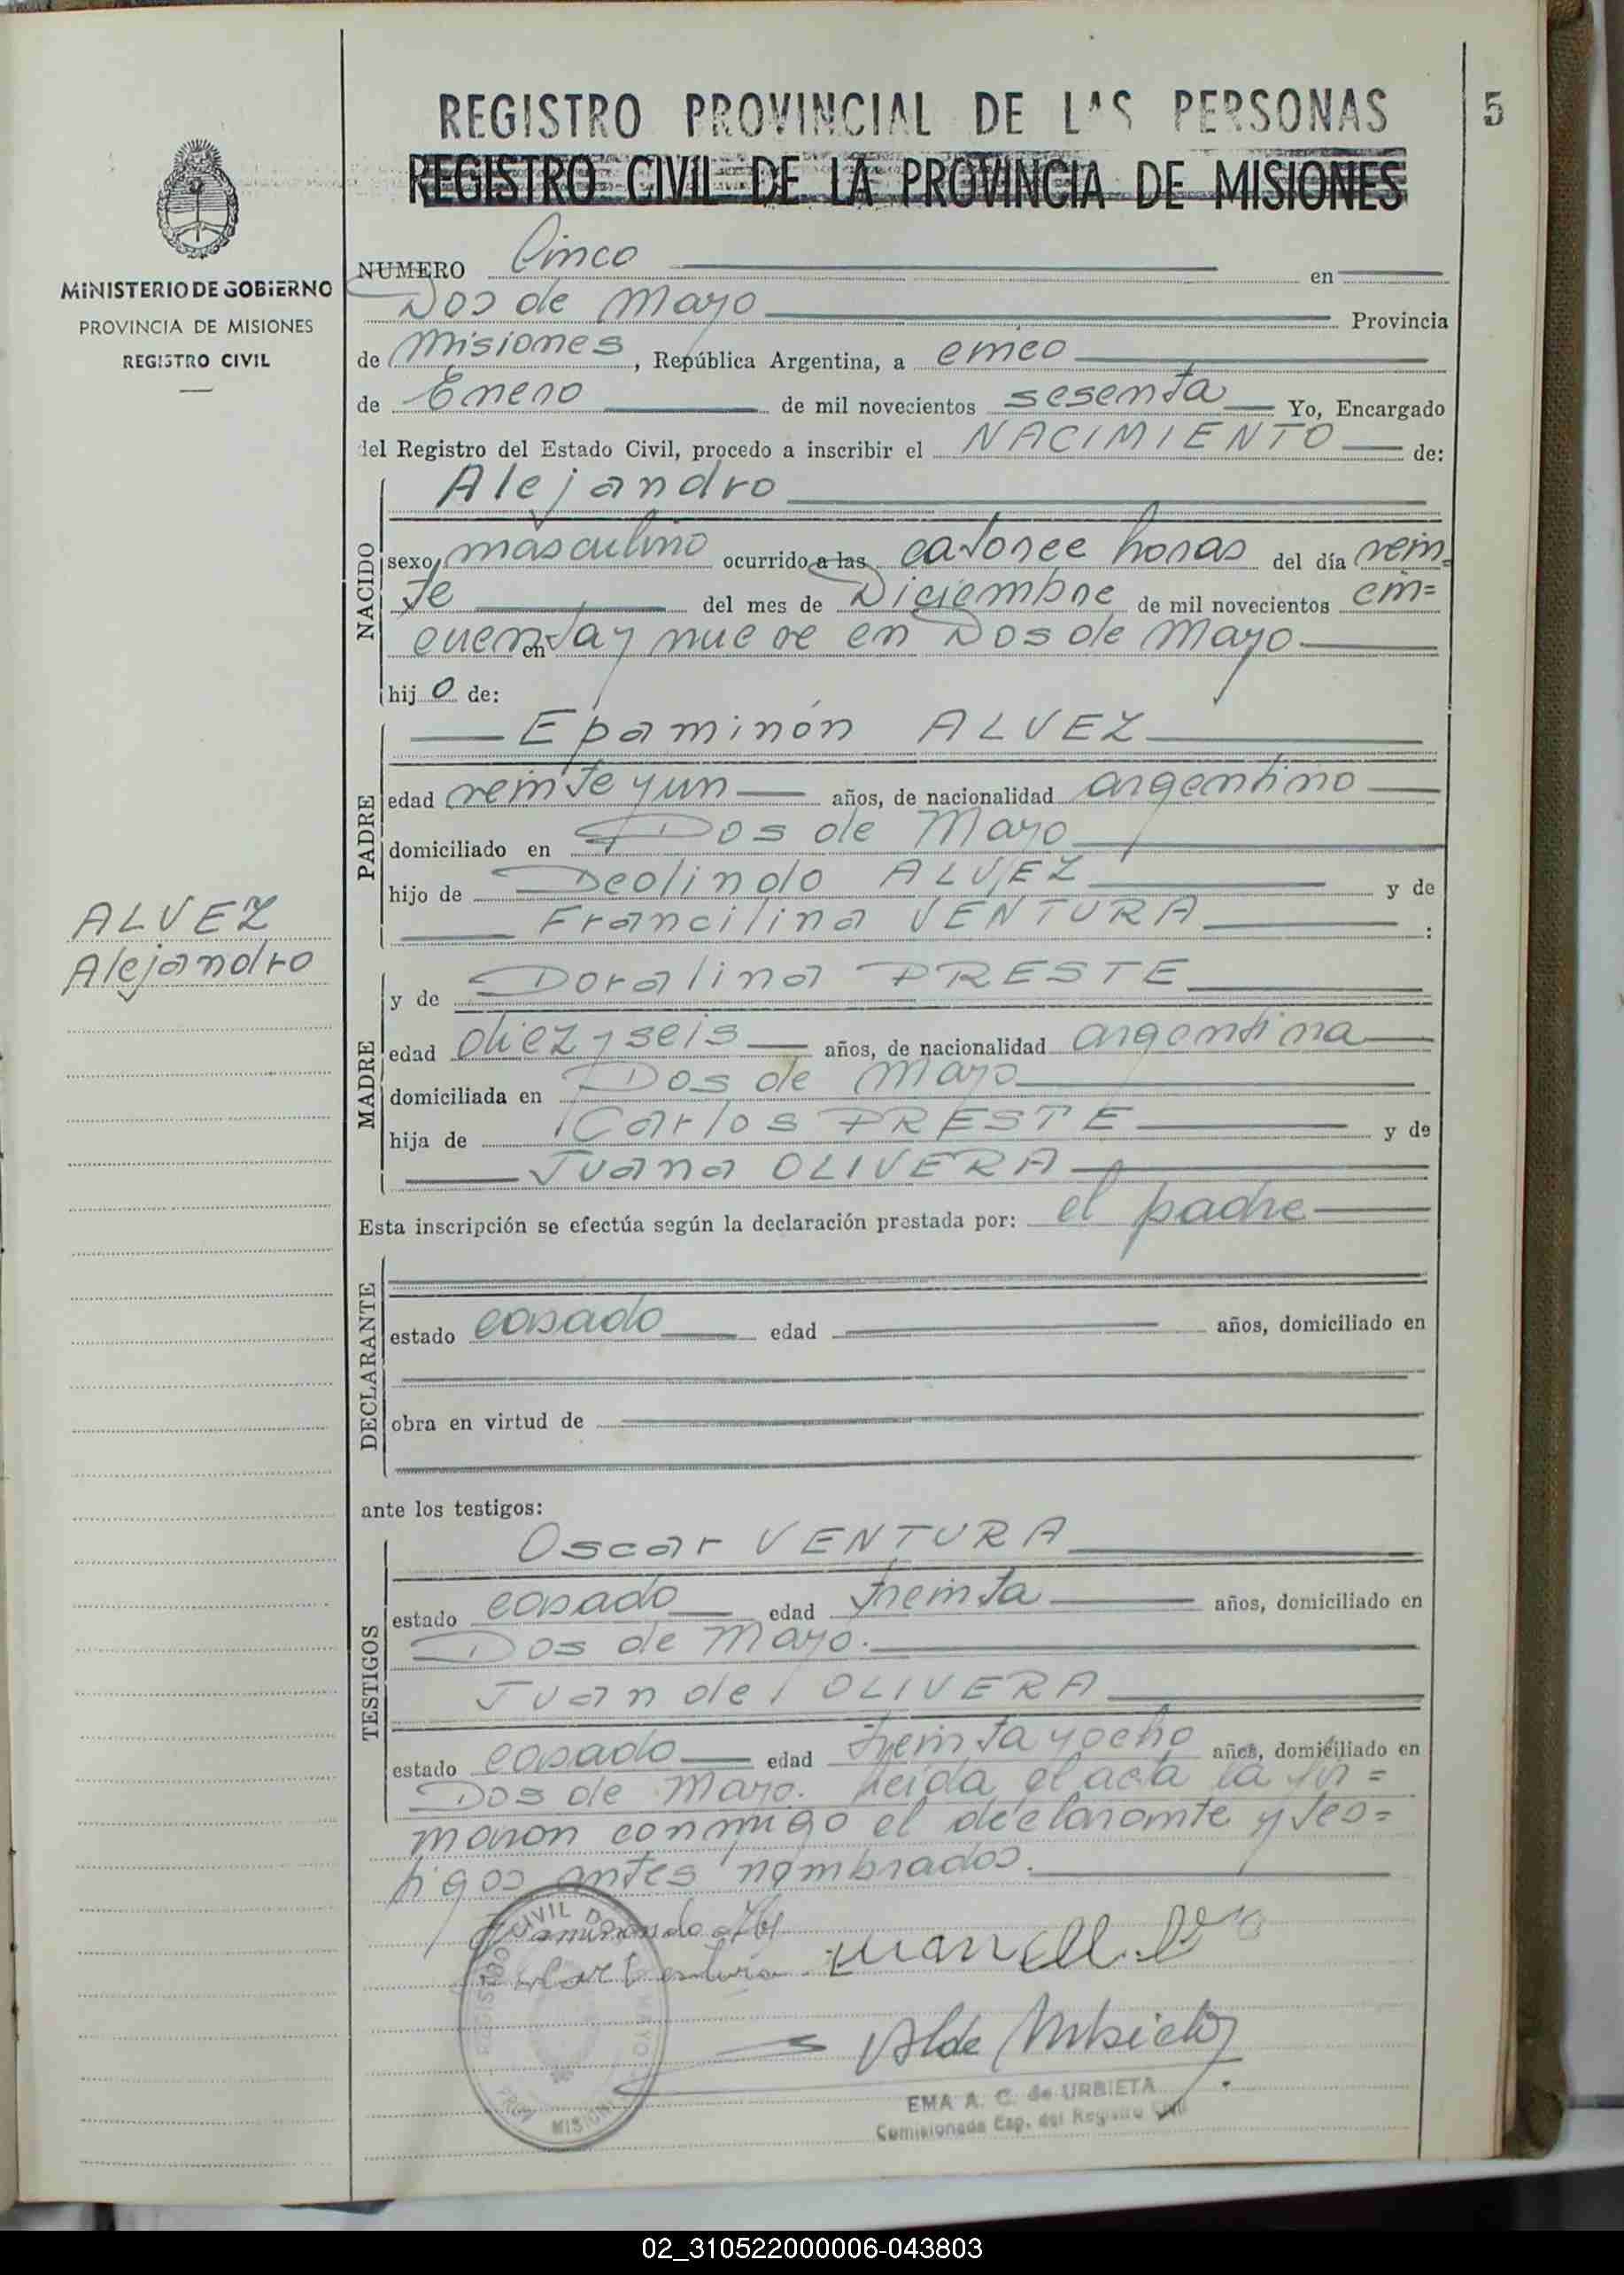 REGISTRO PROVINCIAL DE LAS PERSONAS
5
REGISTRO CIVIL DE LA PROVINCIA DE MISIONES
MINISTERIO DE GOBIERNO
PROVINCIA DE MISIONES
REGISTRO CIVIL
NUMERO Cinco en
Dos de Mayo Provincia
de Misiones, República Argentina, a cinco
de Enero de mil novecientos sesenta Yo, Encargado
del Registro del Estado Civil, procedo a inscribir el NACIMIENTO de:
NACIDO
Alejandro
sexo masculino ocurrido a las catorce horas del día vein-
te del mes de Diciembre de mil novecientos cin=
cuenta y nueve en Dos de Mayo
en
hijo de:
PADRE
Epaminón ALVEZ
edad veinte y un años, de nacionalidad argentino
domiciliado en Dos de Mayo
hijo de Deolindo ALVEZ y de
Francilina VENTURA :
ALVEZ
Alejandro
MADRE
y de Doralina PRESTE
edad diez y seis años, de nacionalidad argentina
domiciliada en Dos de Mayo
hija de Carlos PRESTE y de
Juana OLIVERA
Esta inscripción se efectúa según la declaración prestada por: el padre
DECLARANTE
estado casado edad años, domiciliado en
obra en virtud de
ante los testigos:
TESTIGOS
Oscar VENTURA
estado casado edad treinta años, domiciliado en
Dos de Mayo.
Juandel OLIVERA
estado casado edad treinta y ocho años, domiciliado en
Dos de Mayo. Leida el acta la fir=
maron conmigo el declarante y tes=
tigos antes nombrados.
REGISTRO CIVIL DOS MAYO
PROV MISIONES
EMA A. C. de URBIETA
Comisionada Esp. del Registro Civil
02_310522000006-043803